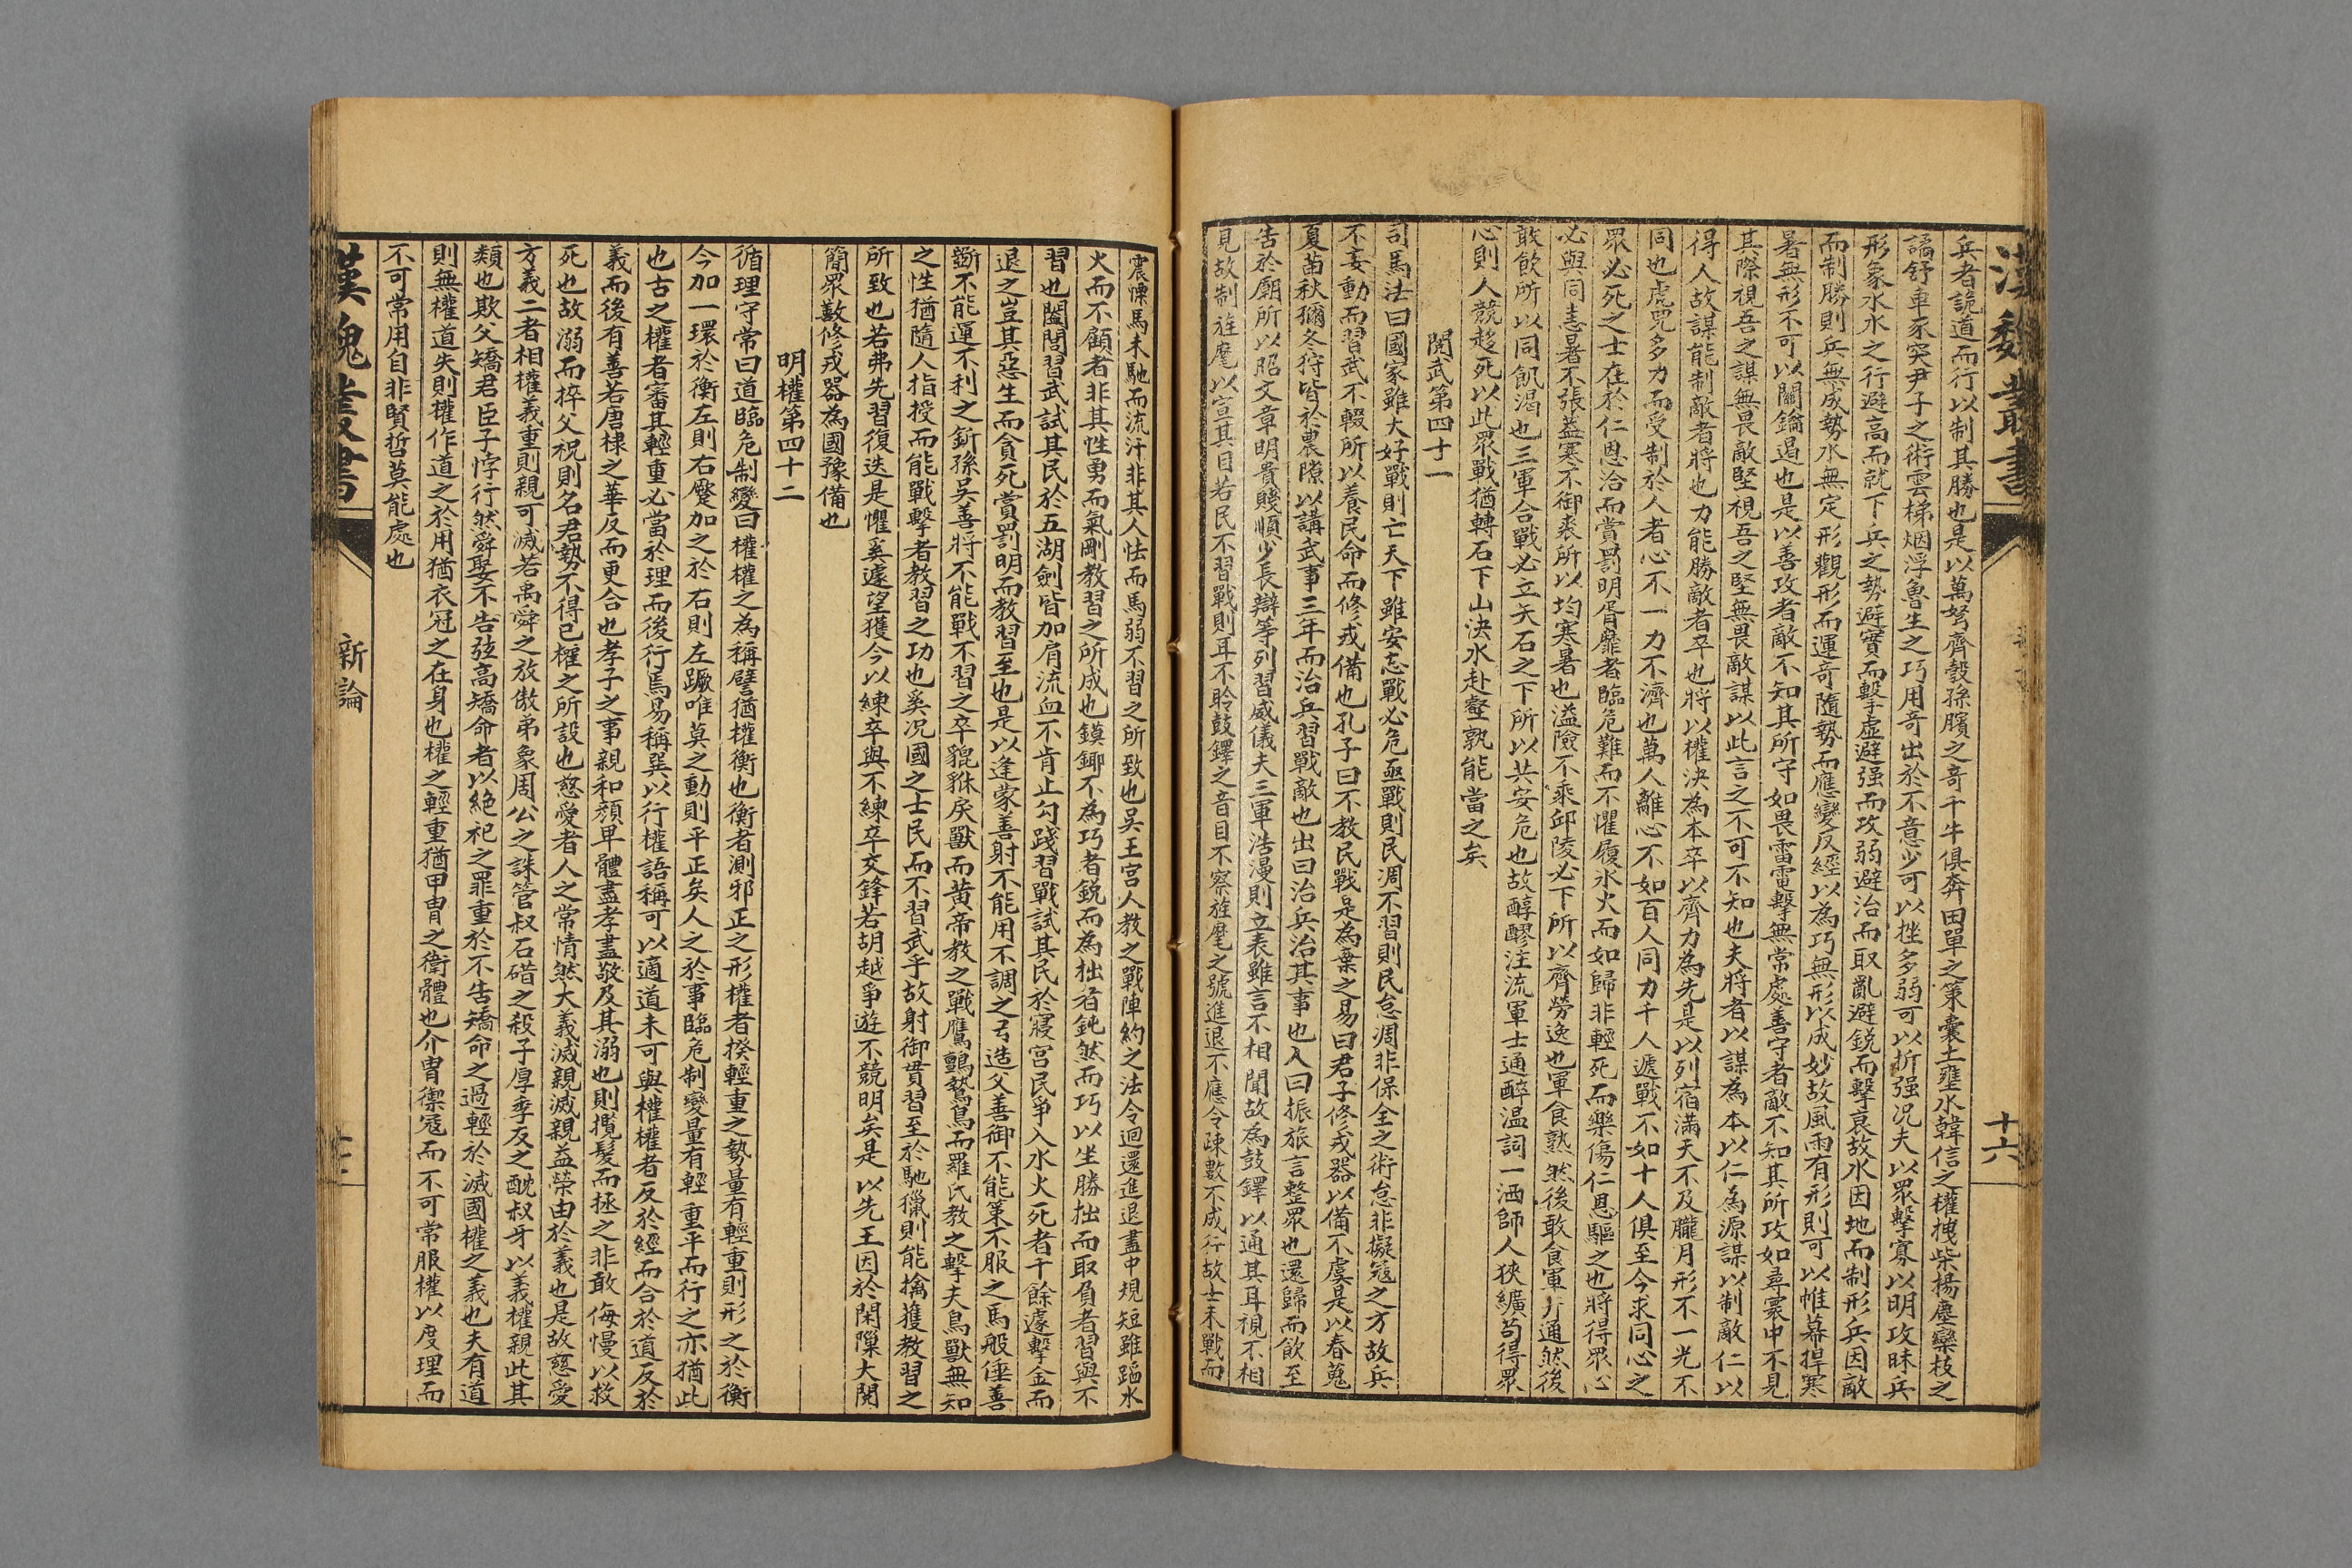 漢魏叢書
十六
兵者詭道而行以制其勝也是以萬弩齊彀孫臏之奇千牛俱奔田單之策囊土壅水韓信之權拽柴揚塵欒枝之
譎舒車豕突尹子之術雲梯烟浮魯生之巧用奇出於不意少可以挫多弱可以折强况夫以眾擊寡以明攻昧兵
形象水水之行避高而就下兵之勢避實而擊虛避强而攻弱避治而取亂避銳而擊衰故水因地而制形兵因敵
而制勝則兵無成勢水無定形觀形而運奇隨勢而應變反經以為巧無形以成妙故風雨有形則可以帷幕捍寒
暑無形不可以關鑰遏也是以善攻者敵不知其所守如畏雷電擊無常處善守者敵不知其所攻如尋寰中不見
其際視吾之謀無畏敵堅視吾之堅無畏敵謀以此言之不可不知也夫將者以謀為本以仁為源謀以制敵仁以
得人故謀能制敵者將也力能勝敵者卒也將以權決為本卒以齊力為先是以列宿滿天不及朧月形不一光不
同也虎兕多力而受制於人者心不一力不濟也萬人離心不如百人同力千人遞戰不如十人俱至今求同心之
眾必死之士在於仁恩洽而賞罰明胥靡者臨危難而不懼履氷火而如歸非輕死而樂傷仁恩驅之也將得眾心
必與同恚暑不張蓋寒不御裘所以均寒暑也溢險不乘邱陵必下所以齊勞逸也軍食熟然後敢食軍井通然後
敢飲所以同飢渴也三軍合戰必立矢石之下所以共安危也故醇醪注流軍士通醉温詞一洒師人挾纊苟得眾
心則人競趍死以此眾戰猶轉石下山決水赴壑孰能當之矣
閱武第四十一
司馬法曰國家雖大好戰則亡天下雖安忘戰必危亟戰則民凋不習則民怠凋非保全之術怠非擬寇之方故兵
不妄動而習武不輟所以養民命而修戎備也孔子曰不教民戰是為棄之易曰君子修戎器以備不虞是以春蒐
夏苗秋獮冬狩皆於農隙以講武事三年而治兵習戰敵也出曰治兵治其事也入曰振旅言整眾也還歸而飲至
告於廟所以昭文章明貴賤順少長辯等列習威儀夫三軍浩漫則立表雖言不相聞故為鼓鐸以通其耳視不相
見故制旌麾以宣其目若民不習戰則耳不聆鼓鐸之音目不察旌麾之號進退不應令疎數不成行故士未戰而
震慄馬未馳而流汗非其人怯而馬弱不習之所致也吴王宫人教之戰陣約之法令迴還進退盡中規短雖蹈水
火而不顧者非其性勇而氣剛教習之所成也鏌鋣不為巧者銳而為拙者鈍然而巧以生勝拙而取負者習與不
習也闔閭習武試其民於五湖劍皆加肩流血不肯止勾踐習戰試其民於寢宮民爭入水火死者千餘遽擊金而
退之豈其惡生而貪死賞罰明而教習至也是以逢蒙善射不能用不調之弓造父善御不能策不服之馬般倕善
斲不能運不利之斲孫吳善將不能戰不習之卒貔貅戾獸而黃帝教之戰鷹鸇鷙鳥而羅氏教之擊夫鳥獸無知
之性猶隨人指授而能戰擊者教習之功也奚况國之士民而不習武乎故射御貫習至於馳獵則能擒獲教習之
所致也若弗先習復迭是懼奚遽望獲今以練卒與不練卒交鋒若胡越爭遊不競明矣是以先王因於閑隟大閱
簡眾數修戎器為國豫備也
明權第四十二
循理守常曰道臨危制變曰權權之為稱譬猶權衡也衡者測邪正之形權者揆輕重之勢量有輕重則形之於衡
今加一環於衡左則右蹷加之於右則左蹶唯莫之動則平正矣人之於事臨危制變量有輕重平而行之亦猶此
也古之權者審其輕重必當於理而後行焉易稱巽以行權語稱可以適道未可與權權者反於經而合於道反於
義而後有善若唐棣之華反而更合也孝子之事親和顏卑體盡孝盡敬及其溺也則攬髮而拯之非敢侮慢以救
死也故溺而捽父祝則名君勢不得已權之所設也慈愛者人之常情然大義滅親滅親益榮由於義也是故慈愛
方義二者相權義重則親可滅若禹舜之放傲弟象周公之誅管叔石碏之殺子厚季友之酖叔牙以義權親此其
類也欺父矯君臣子悖行然舜娶不告弦高矯命者以絶祀之罪重於不告矯命之過輕於滅國權之義也夫有道
則無權道失則權作道之於用猶衣冠之在身也權之輕重猶甲胄之衛體也介胄禦寇而不可常服權以度理而
不可常用自非賢哲莫能處也
漢魏叢書
新論